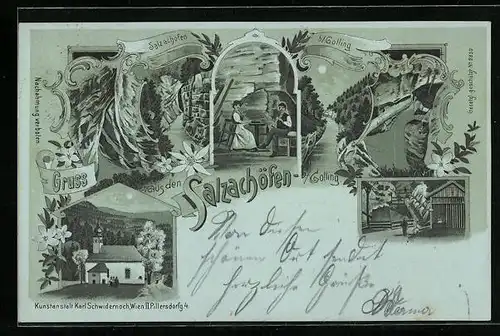 Salzachöfen
b/Golling
Nachahmung verboten.
Gruss
aus den
Salzachöfen
b/Golling
Von diesen
schönen Ort sendet
herzliche Grüße
Kunstanstalt Karl Schwidernoch, Wien II. Pillersdorfg. 4.